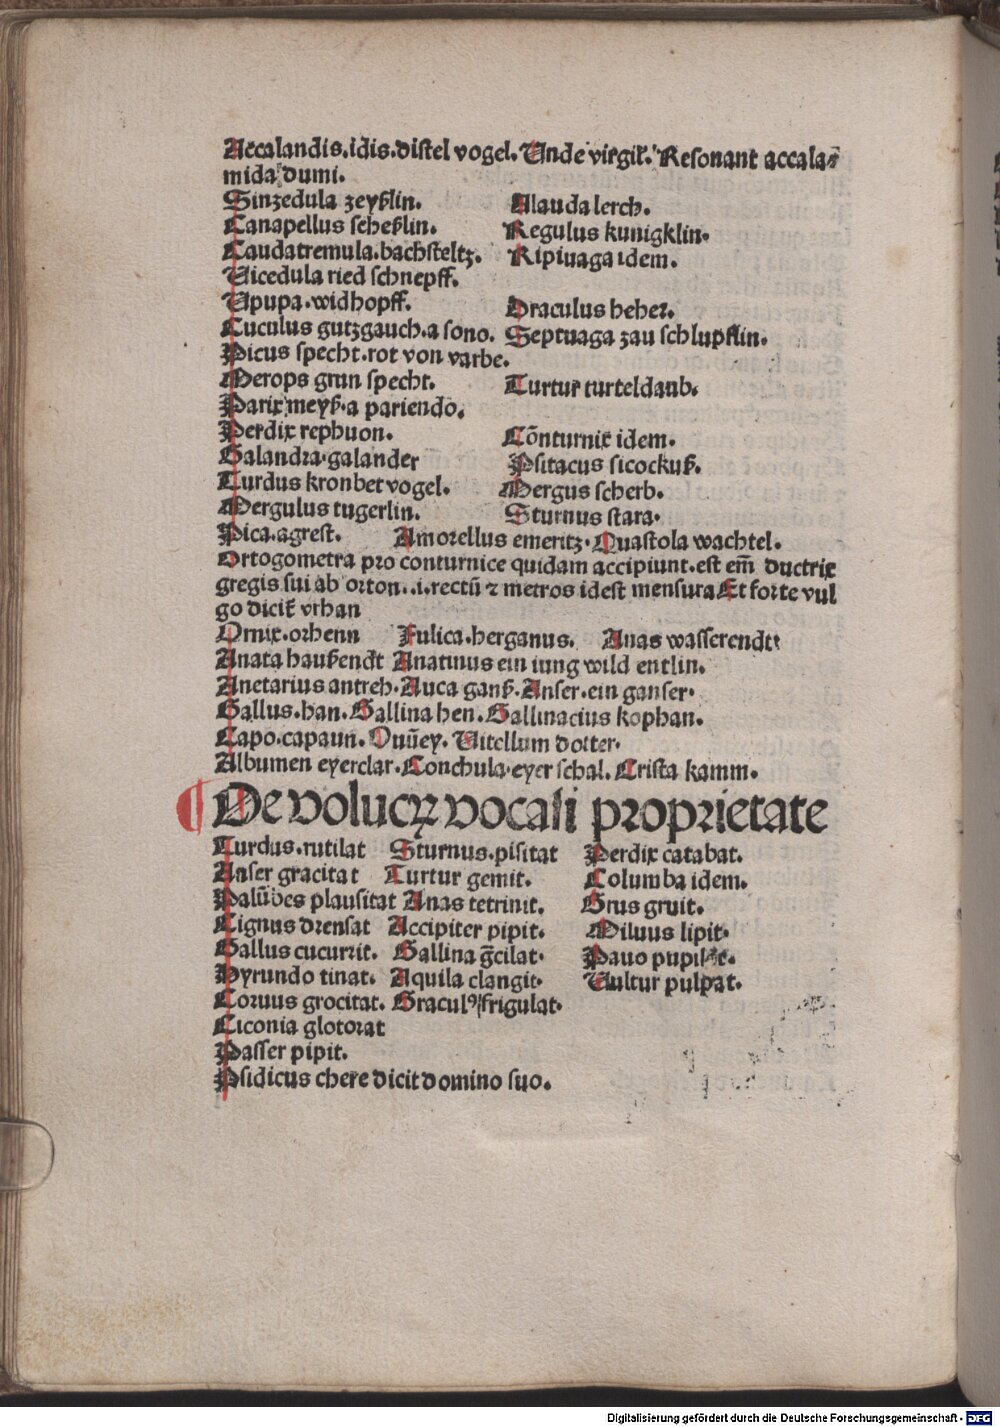 Accalandis.idis.distel vogel.Unde virgil̄. Resonant accala⸗
mida dumi.
Sinzedula zeyßlin. Alauda lerch.
Canapellus scheßlin. Regulus kunigklin.
Caudatremula.bachsteltz. Ripiuaga idem.
Uicedula ried schnepff.
Upupa.widhopff. Draculus heher.
Cuculus gutzgauch.a sono. Septuaga zau schlupflin.
Picus specht.rot von varbe.
Merops grun specht. Turtur turteldaub.
Parix meyß.a pariendo.
Perdix rephuon. Cōnturnix idem.
Galandra.galander Psitacus sicockuß.
Turdus kronbet vogel. Mergus scherb.
Mergulus tugerlin. Sturnus stara.
Pica.agrest. Amorellus emeritz.Quastola wachtel.
Ortogometra pro conturnice quidam accipiunt.est em̄ ductrix
gregis sui ab orton..i.rectū ⁊ metros idest mensura Et forte vul
go dicit̄ vrhan
Ornix.orhenn Fulica.herganus. Anas wasserendt
Anata haußendt Anatinus ein iung wild entlin.
Anetarius antreh.Auca ganß.Anser.ein ganser.
Gallus.han.Gallina hen.Gallinacius kophan.
Capo.capaun.Ouū ey. Uitellum dotter.
Albumen eyerclar.Conchula.eyer schal.Crista kamm.
¶ De volucrꝝ vocali proprietate
Turdus.rutilat Sturnus.pisitat Perdix catabat.
Anser gracitat Turtur gemit. Columba idem.
Palūbes plausitat Anas tetrinit. Grus gruit.
Cignus drensat Accipiter pipit. Miluus lipit.
Gallus cucurrit. Gallina gc̄ilat. Pauo pupilat.
Hyrundo tinat. Aquila clangit. Uultur pulpat.
Coruus grocitat. Graculꝰ frigulat.
Ciconia glotorat
Passer pipit.
Psidicus chere dicit domino suo.
Digitalisierung gefördert durch die Deutsche Forschungsgemeinschaft - DFG